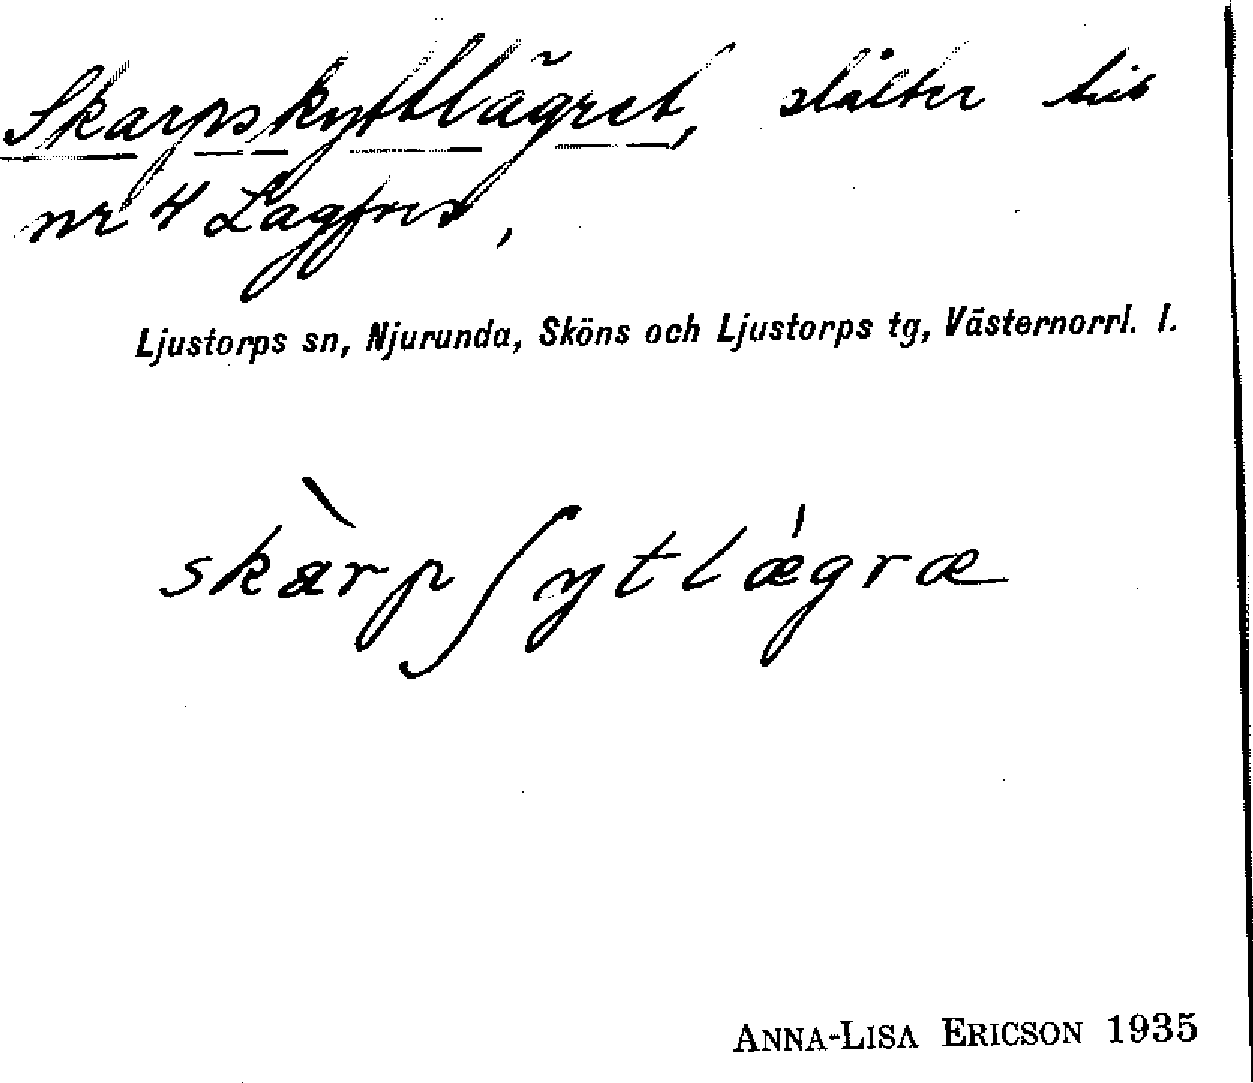 Skarpskyttlägret, slåtter till
nr 4 Lagfors,
Ljustorps sn, Njurunda, Sköns och Ljustorps tg, Västernorrl. l.
skàrpʃytlǽgræ
ANNA-LISA ERICSON 1935